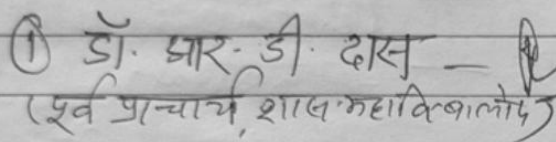 ① डॉ. आर. डी. दास –
(पूर्व प्राचार्य, शास. महावि. बालोद)